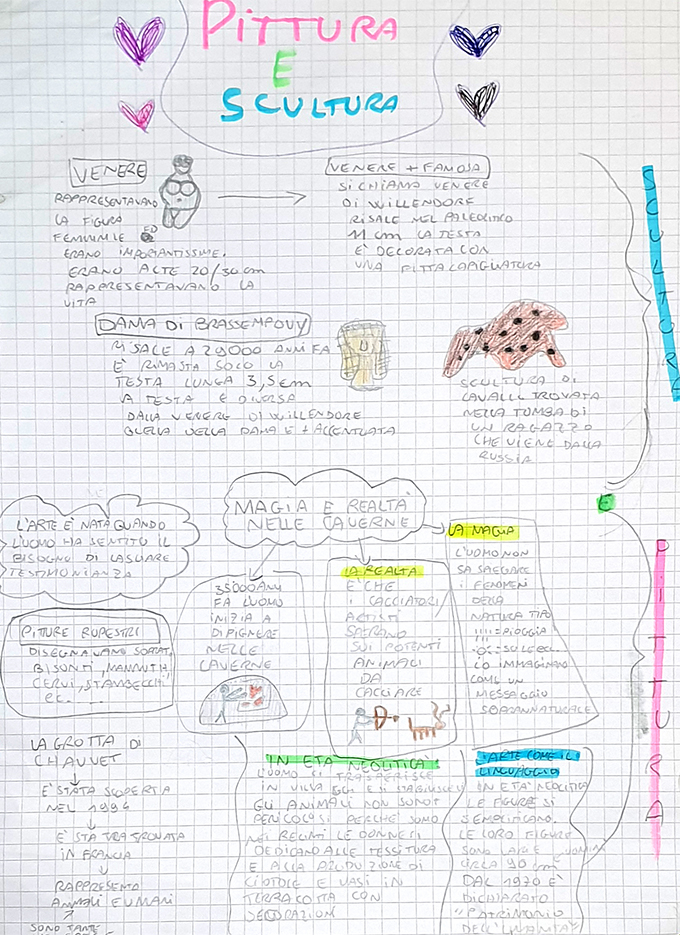 PITTURA
E
SCULTURA
VENERE
RAPPRESENTAVANO
LA FIGURA
FEMMINILE ED
ERANO IMPORTANTISSIME.
ERANO ALTE 20/30 cm
RAPPRESENTAVANO LA
VITA
VENERE + FAMOSA
SI CHIAMA VENERE
DI WILLENDORE
RISALE NEL PALEOLITICO
11 cm LA TESTA
È DECORATA CON
UNA FITTA
SCULTURA
DAMA DI BRASSEMPOUY
RISALE A 29000 ANNI FA
È RIMASTA SOLO LA
TESTA LUNGA 3,5 cm
LA TESTA È DIVERSA
DALLA VENERE DI WILLENDORE
QUELLA DELLA DAMA È + ACCENTUATA
SCULTURA DI
CAVALLI TROVATA
NELLA TOMBA DI
UN RAGAZZO
CHE VIENE DALLA
RUSSIA
E
PITTURA
MAGIA E REALTÀ
NELLE CAVERNE
L'ARTE È NATA QUANDO
L'UOMO HA SENTITO IL
BISOGNO DI LASCIARE
TESTIMONIANZA
PITURE RUPESTRI
DISEGNAVANO SOPRAT.
BISONTI, MAMMUTH,
CERVI, STAMBECCHI
ec. ....
35000 ANNI
FA L'UOMO
INIZIA A
DIPIGNERE
NELLE
CAVERNE
LA REALTÀ
È CHE
I CACCIATORI
ARTISTI
SUI POTENTI
ANIMALI
DA
CACCIARE
LA MAGIA
L'UOMO NON
SA SPIEGARE
I FENOMENI
DELLA
NATURA TIPO
= PIOGGIA
= SOLE ec.
LO IMMAGINANO
COME UN
MESSAGGIO
SOPRANNATURALE
LA GROTTA DI
CHAUVET
È STATA SCOPERTA
NEL 1994
È STATA TROVATA
IN FRANCIA
RAPPRESENTA
ANIMALI E UMANI
SONO TANTE
IN ETÀ NEOLITICA
L'UOMO SI TRASFERISCE
IN VILLAGGI E SI STABILISCE
GLI ANIMALI NON SONO
PERICOLOSI PERCHÈ SONO
NEI RECINTI LE DONNE SI
DEDICANO ALLE TESSITURA
E ALLA PRODUZIONE DI
CIOTOLE E VASI IN
TERRACOTTA CON
DECORAZIONI
L'ARTE COME IL
LINGUAGGIO
IN ETÀ NEOLITICA
LE FIGURE SI
SEMPLIFICANO.
LE LORO FIGURE
SONO
CIRCA 90 cm
DAL 1970 È
DICHIARATO
"PATRIMONIO
DELL'UMANITÀ"